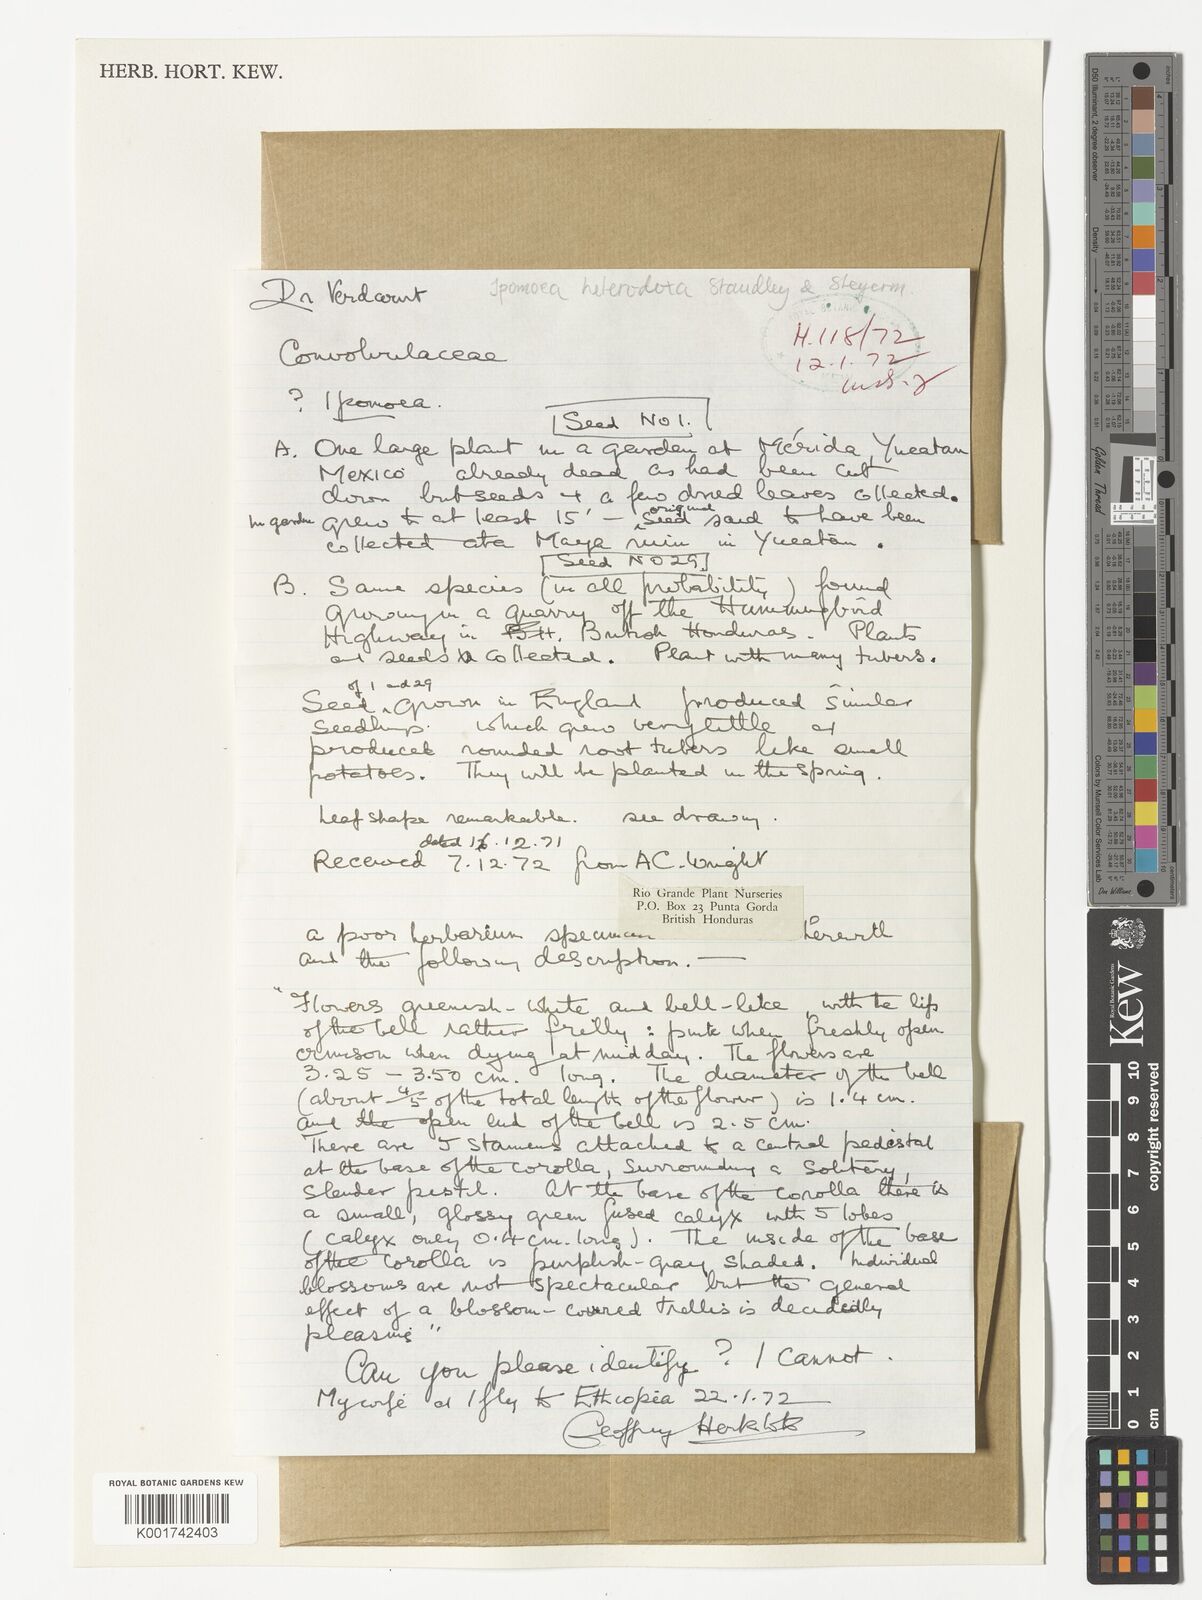 HERB. HORT. KEW.
Dr Verdcourt
Ipomoea heterodoxa Standley & Steyerm.
H.118/72
12.1.72
Convolvulaceae
? Ipomoea.
Seed No 1.
A. One large plant in a garden at Mérida, Yucatan
Mexico already dead as had been cut
down but seeds + a few dried leaves collected.
In garden grew to at least 15' - original Seed said to have been
collected at a Maya ruin in Yucatán.
Seed No 29.
B. Same species (in all probability) found
growing in a quarry off the Hummingbird
Highway in B.H. British Honduras. Plants
and seeds collected. Plant with many tubers.
Seed of 1 and 29 grown in England produced similar
seedlings which grew very little &
produced rounded root tubers like small
potatoes. They will be planted in the spring.
Leaf shape remarkable. see drawing.
dated 16.12.71
Received 7.12.72 from A.C. Wright
Rio Grande Plant Nurseries
P.O. Box 23 Punta Gorda
British Honduras
a poor herbarium specimen herewith
and the following description. —
"Flowers greenish-white and bell-like, with the lips
of the bell rather frilly: pink when freshly open
crimson when dying at midday. The flowers are
3.25 - 3.50 cm. long. The diameter of the bell
(about 4/5 of the total length of the flower) is 1.4 cm.
and the open end of the bell is 2.5 cm.
There are 5 stamens attached to a central pedestal
at the base of the corolla, surrounding a solitary,
slender pistil. At the base of the corolla there is
a small, glossy green fused calyx with 5 lobes
(calyx only 0.4 cm. long). The inside of the base
of the corolla is purplish-gray shaded. Individual
blossoms are not spectacular but the general
effect of a blossom-covered trellis is decidedly
pleasing"
Can you please identify? I cannot.
My wife & I fly to Ethiopia 22.1.72
Geoffrey Herklots
ROYAL BOTANIC GARDENS KEW
K001742403
Royal Botanic Gardens
Kew
copyright reserved
0 1 2 3 4 5 6 7 8 9 10
cm
D50 Illuminant, 2 degree observer
Density
Golden Thread
Colors by Munsell Color Services Lab
Don Williams
inches
centimeters